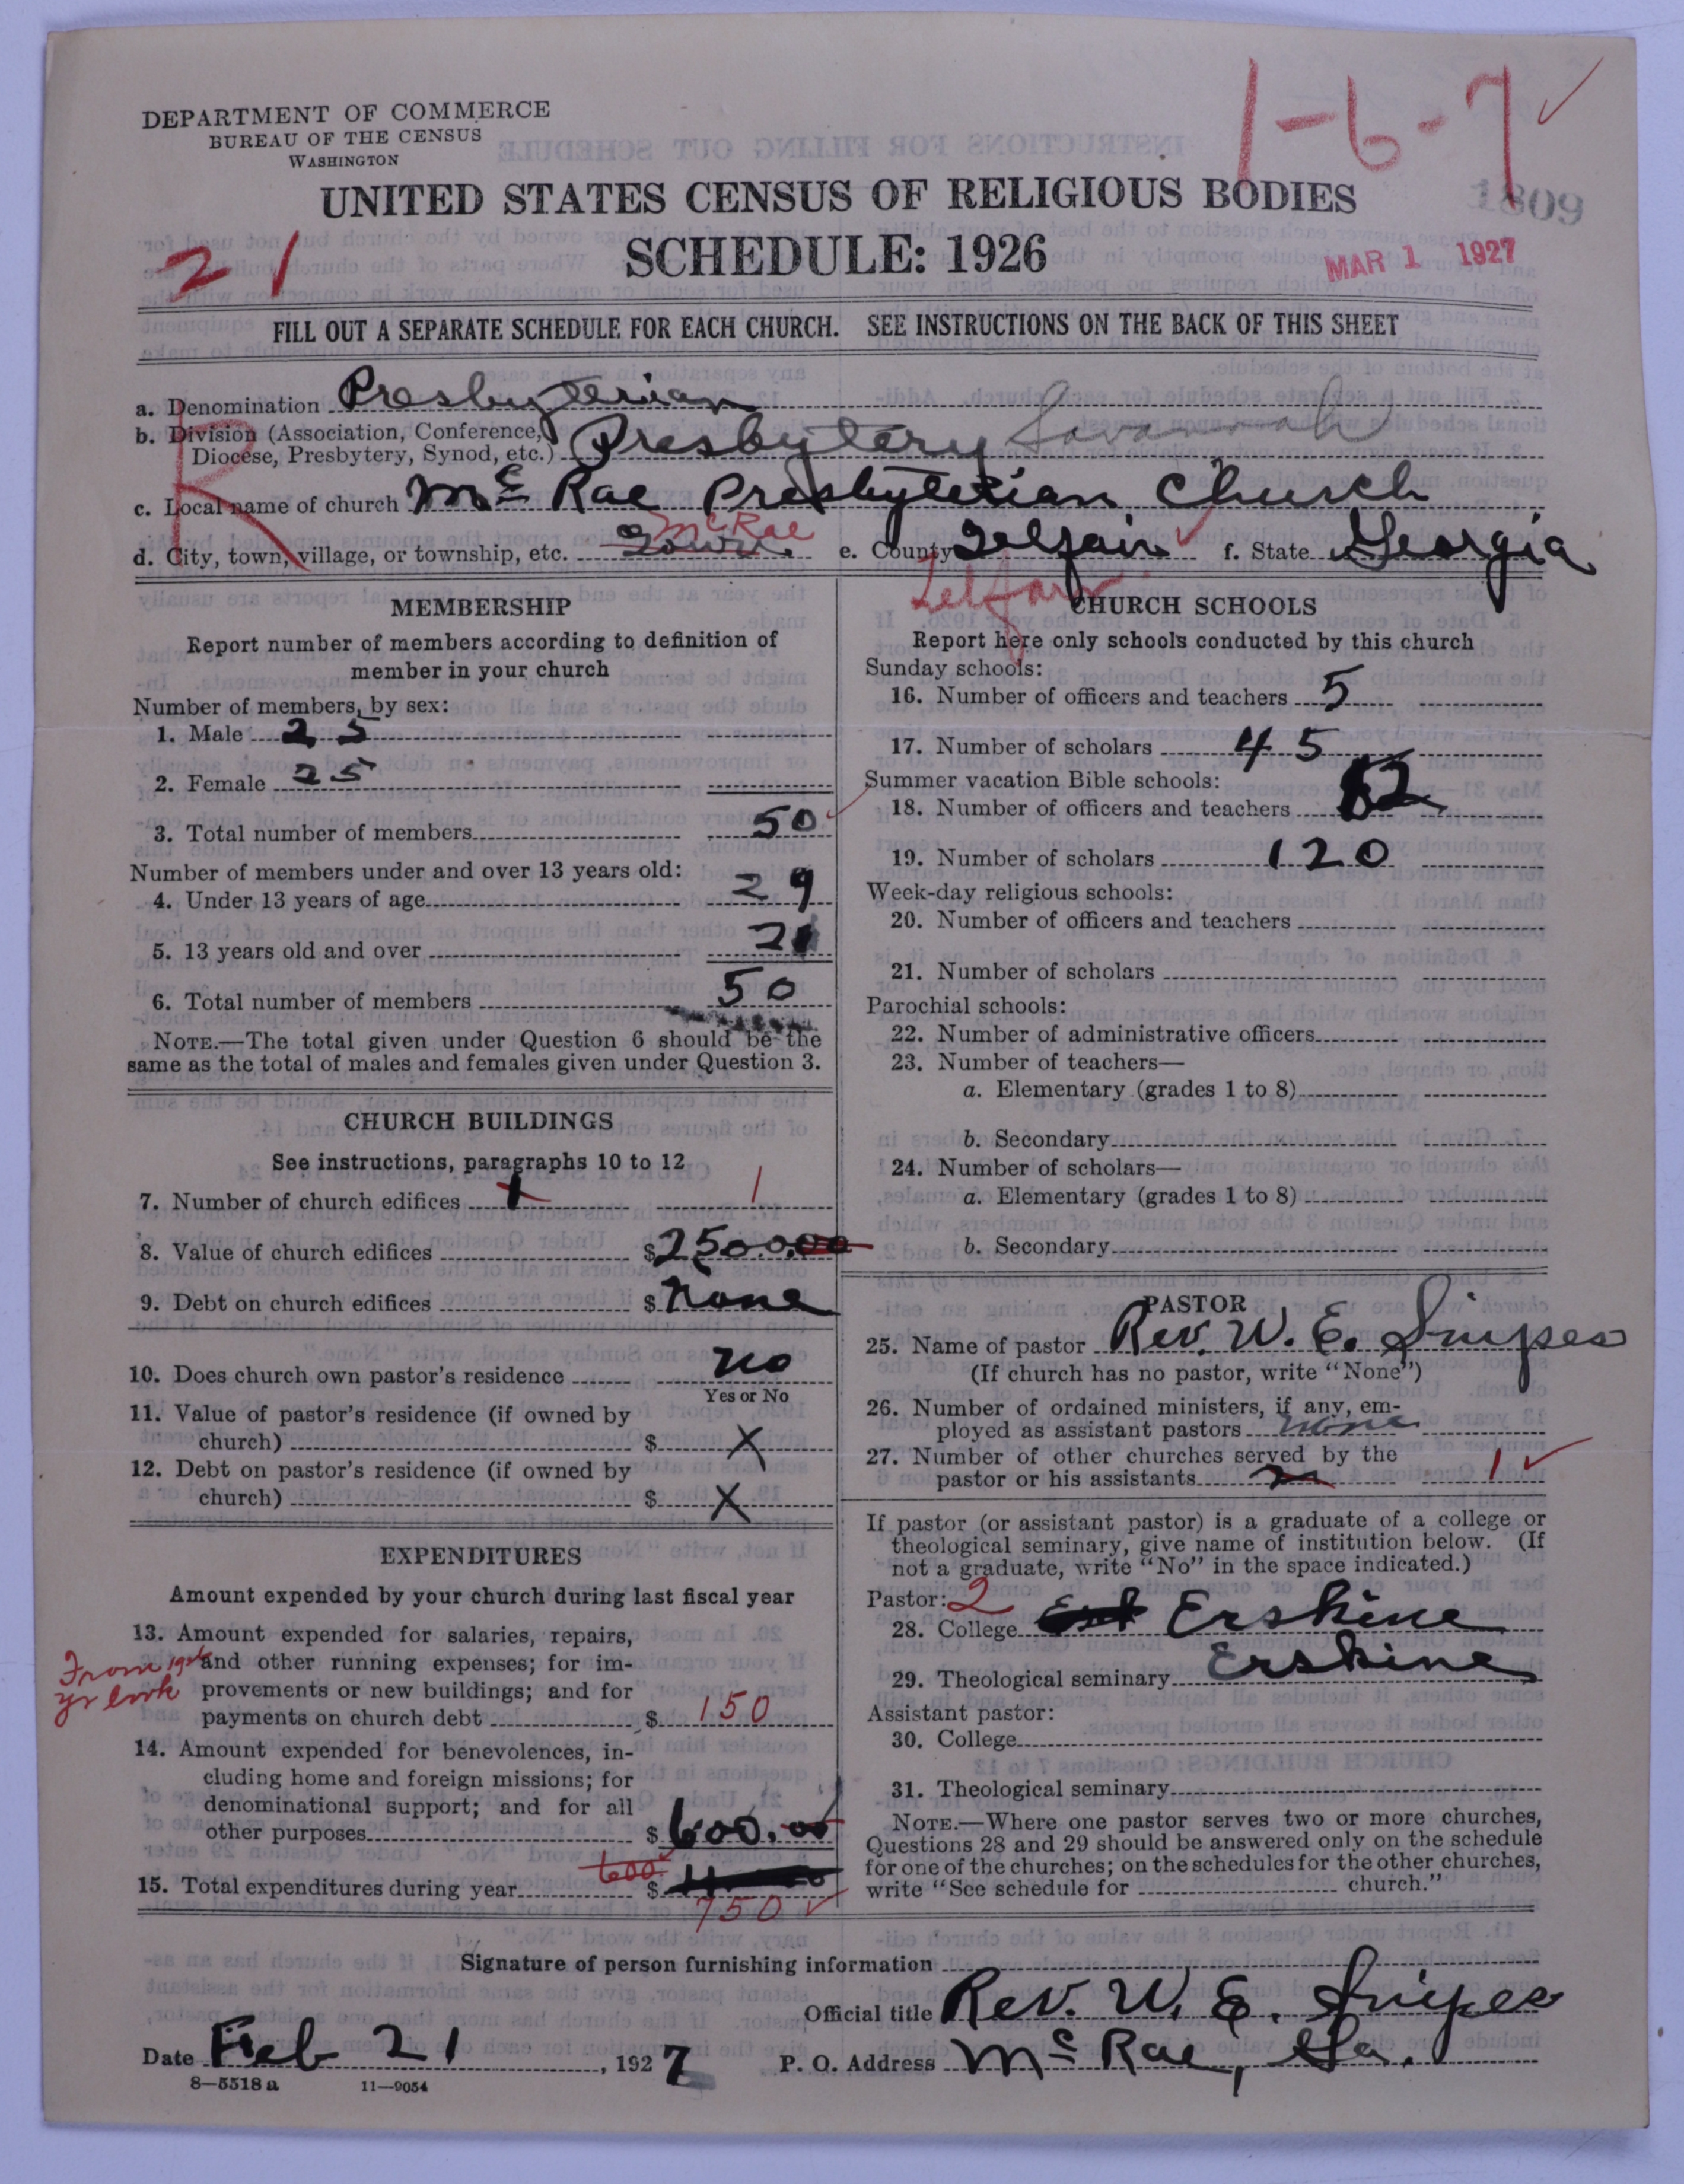 DEPARTMENT OF COMMERCE
BUREAU OF THE CENSUS
WASHINGTON
1-6-7
UNITED STATES CENSUS OF RELIGIOUS BODIES
1809
SCHEDULE: 1926
21
MAR 1 1927
FILL OUT A SEPARATE SCHEDULE FOR EACH CHURCH. SEE INSTRUCTIONS ON THE BACK OF THIS SHEET
a. Denomination Presbyterian
b. Division (Association, Conference, Diocese, Presbytery, Synod, etc.) Presbytery Savannah
R
c. Local name of church Mc Rae Presbyterian Church
McRae
d. City, town, village, or township, etc. Town. e. County Telfair f. State Georgia
Telfair
MEMBERSHIP
Report number of members according to definition of
member in your church
Number of members, by sex:
1. Male 25
2. Female 25
3. Total number of members 50
Number of members under and over 13 years old:
4. Under 13 years of age 29
5. 13 years old and over 21
6. Total number of members 50
NOTE.—The total given under Question 6 should be the
same as the total of males and females given under Question 3.
CHURCH BUILDINGS
See instructions, paragraphs 10 to 12
7. Number of church edifices 1 1
8. Value of church edifices $2500.00
9. Debt on church edifices $ none
10. Does church own pastor's residence no
Yes or No
11. Value of pastor's residence (if owned by
church) $ X
12. Debt on pastor's residence (if owned by
church) $ X
EXPENDITURES
Amount expended by your church during last fiscal year
13. Amount expended for salaries, repairs,
From 1926 and other running expenses; for im-
yr book provements or new buildings; and for
payments on church debt $ 150
14. Amount expended for benevolences, in-
cluding home and foreign missions; for
denominational support; and for all
other purposes $ 600.00
600
15. Total expenditures during year $
750
CHURCH SCHOOLS
Report here only schools conducted by this church
Sunday schools:
16. Number of officers and teachers 5
17. Number of scholars 45
Summer vacation Bible schools:
18. Number of officers and teachers 12
19. Number of scholars 120
Week-day religious schools:
20. Number of officers and teachers
21. Number of scholars
Parochial schools:
22. Number of administrative officers
23. Number of teachers—
a. Elementary (grades 1 to 8)
b. Secondary
24. Number of scholars—
a. Elementary (grades 1 to 8)
b. Secondary
PASTOR
25. Name of pastor Rev. W. E. Snipes
(If church has no pastor, write "None")
26. Number of ordained ministers, if any, em-
ployed as assistant pastors none
27. Number of other churches served by the
pastor or his assistants 1
If pastor (or assistant pastor) is a graduate of a college or
theological seminary, give name of institution below. (If
not a graduate, write "No" in the space indicated.)
Pastor: 2
28. College Erskine
29. Theological seminary Erskine
Assistant pastor:
30. College
31. Theological seminary
NOTE.—Where one pastor serves two or more churches,
Questions 28 and 29 should be answered only on the schedule
for one of the churches; on the schedules for the other churches,
write "See schedule for church."
Signature of person furnishing information
Official title Rev. W. E. Snipes
Date Feb 21, 1927 P. O. Address Mc Rae, Ga.
8—5518 a 11—9054